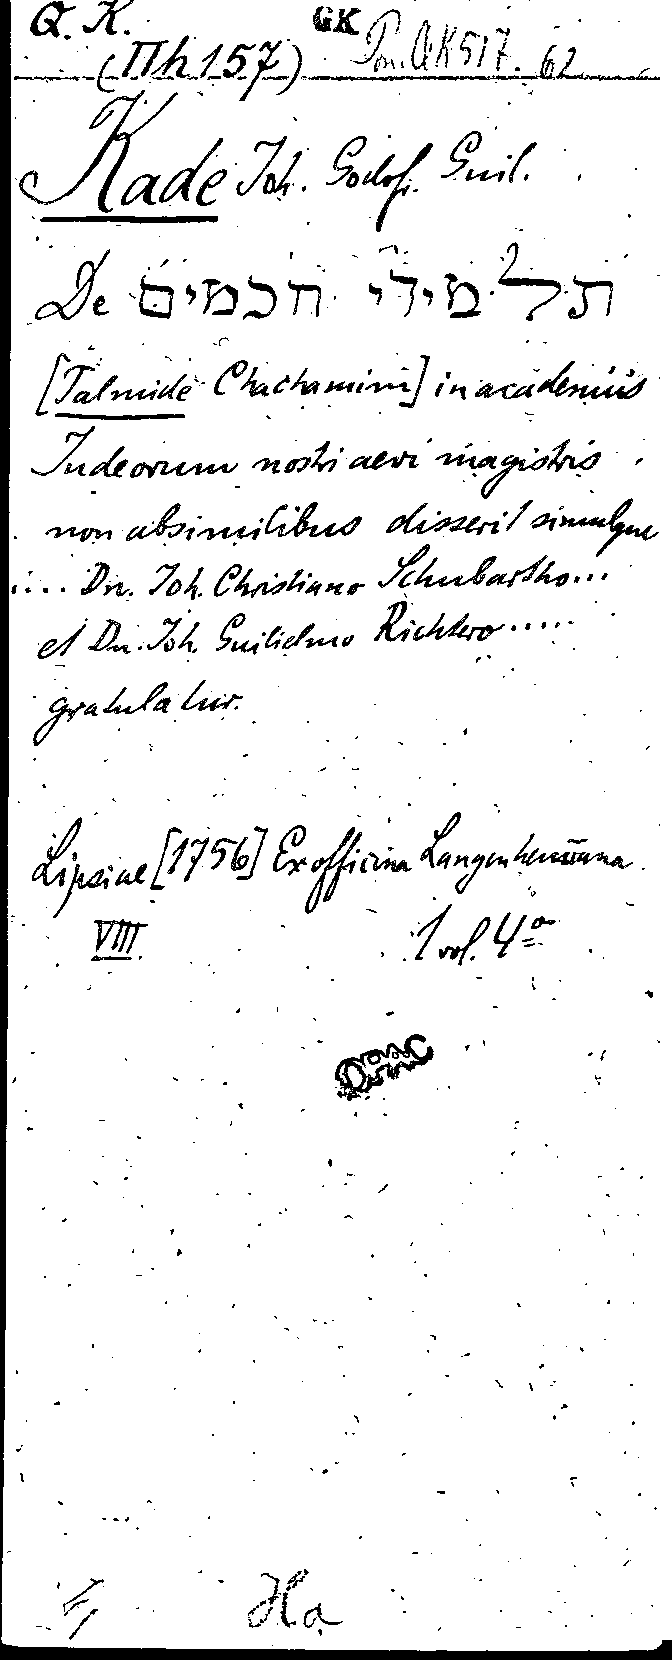 Q. K. GK Pon. QK 517. 62
(IIh 157)
Kade Joh. Godof. Guil.
De תלמידי חכמים
[Talmide Chachamim] in academiis
Judeorum nostri aevi magistris
non absimilibus disserit simulque
.... Dn. Joh. Christiano Schubartho...
et Dn. Joh. Guilielmo Richtero.....
gratulatur.
Lipsiae [1756] Ex officina Langenhemiana
VIII 1 vol. 4º
OPAC
Ha